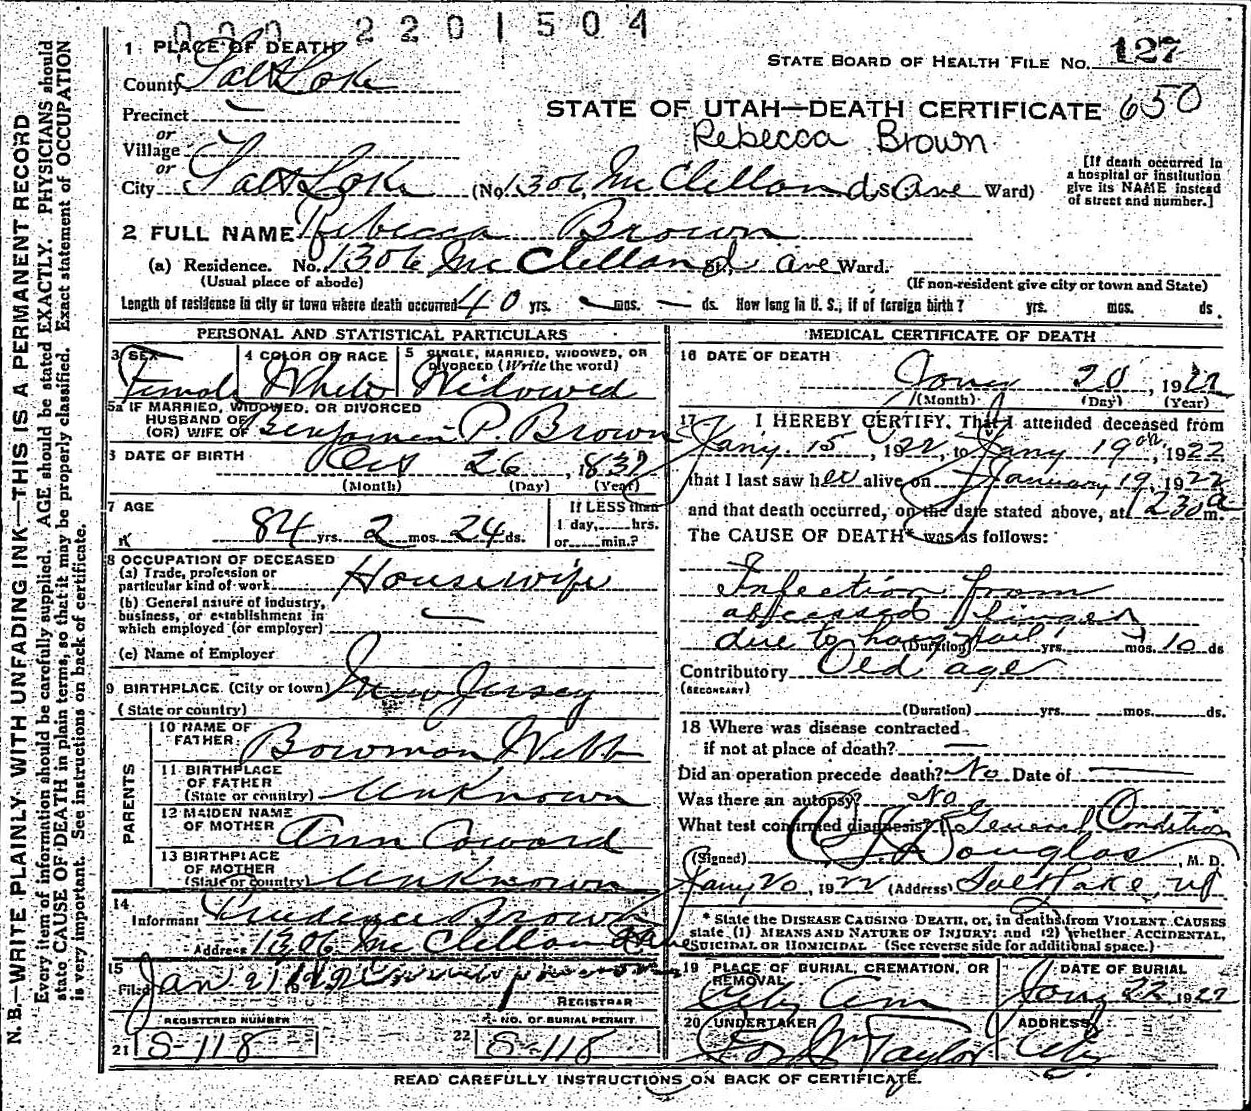 000 2201504
1 PLACE OF DEATH
County Salt Lake
STATE BOARD OF HEALTH FILE NO. 127
Precinct —
STATE OF UTAH—DEATH CERTIFICATE 650
or
Rebecca Brown
Village
or
City Salt Lake (No. 1306 McClelland St. Ave Ward)
[If death occurred in
a hospital or institution
give its NAME instead
of street and number.]
2 FULL NAME Rebecca Brown
(a) Residence. No. 1306 McClelland St., Ave Ward.
(Usual place of abode) (If non-resident give city or town and State)
Length of residence in city or town where death occurred 40 yrs. — mos. — ds. How long in U. S., if of foreign birth? yrs. mos. ds.
PERSONAL AND STATISTICAL PARTICULARS
3 SEX Female
4 COLOR OR RACE White
5 SINGLE, MARRIED, WIDOWED, OR
DIVORCED (Write the word)
Widowed
5a IF MARRIED, WIDOWED, OR DIVORCED
HUSBAND OF
(OR) WIFE OF Benjamin P. Brown
6 DATE OF BIRTH Oct 26, 1837
(Month) (Day) (Year)
7 AGE 84 yrs. 2 mos. 24 ds.
If LESS than
1 day,......hrs.
or......min.?
8 OCCUPATION OF DECEASED
(a) Trade, profession or
particular kind of work Housewife
(b) General nature of industry,
business, or establishment in
which employed (or employer) —
(c) Name of Employer
9 BIRTHPLACE (City or town) New Jersey
(State or country)
PARENTS
10 NAME OF
FATHER Bowman Webb
11 BIRTHPLACE
OF FATHER
(State or country) Unknown
12 MAIDEN NAME
OF MOTHER Ann Coward
13 BIRTHPLACE
OF MOTHER
(State or country) Unknown
14
Informant Prudence Brown
Address 1306 McClelland Ave
15
Filed Jan 21
REGISTRAR
REGISTERED NUMBER NO. OF BURIAL PERMIT
21 S-118 22 S-118
MEDICAL CERTIFICATE OF DEATH
16 DATE OF DEATH
Jany 20, 1922
(Month) (Day) (Year)
17 I HEREBY CERTIFY, That I attended deceased from
Jany. 15, 1922, to Jany 19th, 1922,
that I last saw her alive on January 19, 1922
and that death occurred, on the date stated above, at 1230 a m.
The CAUSE OF DEATH* was as follows:
Infection from
abscessed finger
due to hang nail (Duration) yrs. mos. 10 ds
Contributory Old age
(SECONDARY)
(Duration) yrs. mos. ds.
18 Where was disease contracted
if not at place of death? —
Did an operation precede death? No Date of —
Was there an autopsy? No
What test confirmed diagnosis? General Condition
(Signed) Douglas, M. D.
Jany 20, 1922 (Address) Salt Lake, Ut
* State the DISEASE CAUSING DEATH, or, in deaths from VIOLENT CAUSES
state (1) MEANS AND NATURE OF INJURY; and (2) whether ACCIDENTAL,
SUICIDAL OR HOMICIDAL (See reverse side for additional space.)
19 PLACE OF BURIAL, CREMATION, OR
REMOVAL
City Cem
DATE OF BURIAL
Jany 22 1922
20 UNDERTAKER
Jos Wm Taylor
ADDRESS
City
READ CAREFULLY INSTRUCTIONS ON BACK OF CERTIFICATE.
N. B.—WRITE PLAINLY WITH UNFADING INK—THIS IS A PERMANENT RECORD
Every item of information should be carefully supplied. AGE should be stated EXACTLY. PHYSICIANS should
state CAUSE OF DEATH in plain terms, so that it may be properly classified. Exact statement of OCCUPATION
is very important. See instructions on back of certificate.